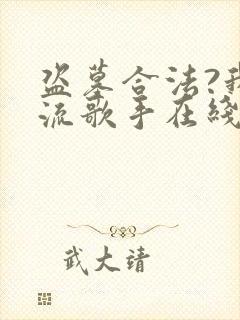 盗墓合法?我
流歌手在线
武大靖